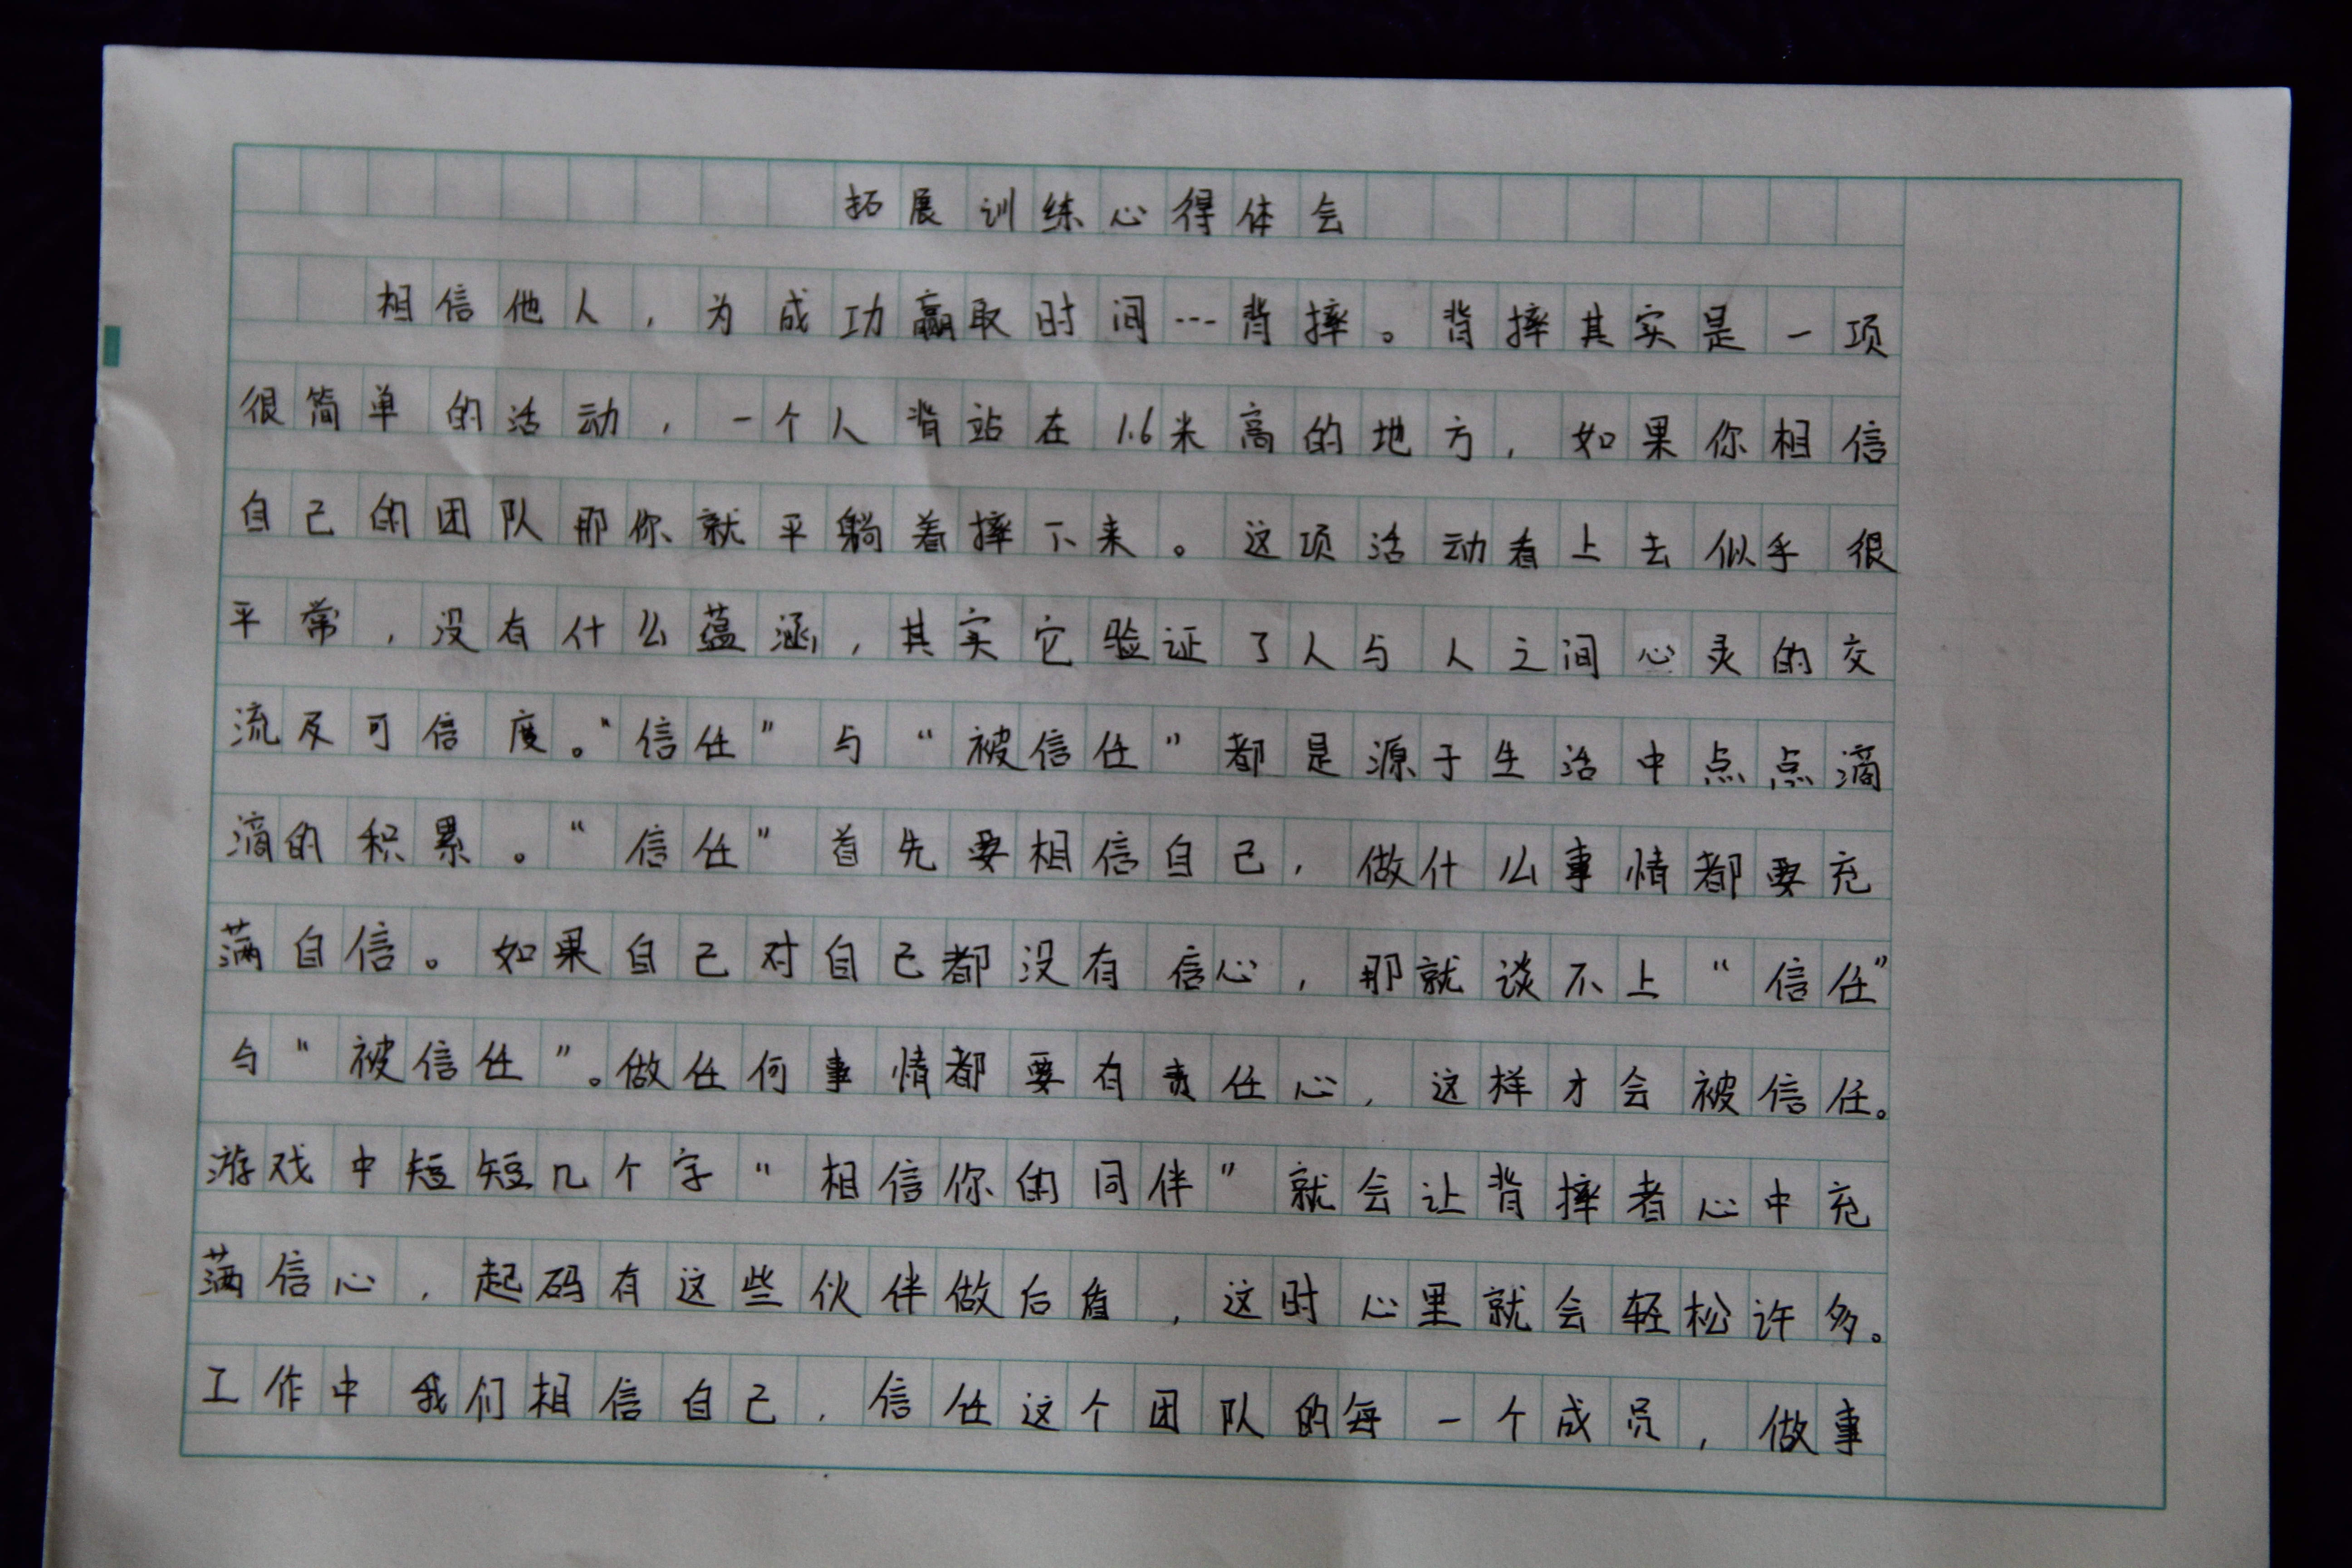 拓展训练心得体会
相信他人，为成功赢取时间---背摔。背摔其实是一项
很简单的活动，一个人背站在1.6米高的地方，如果你相信
自己的团队那你就平躺着摔下来。这项活动看上去似乎很
平常，没有什么蕴涵，其实它验证了人与人之间心灵的交
流及可信度。“信任”与“被信任”都是源于生活中点点滴
滴的积累。“信任”首先要相信自己，做什么事情都要充
满自信。如果自己对自己都没有信心，那就谈不上“信任”
与“被信任”。做任何事情都要有责任心，这样才会被信任。
游戏中短短几个字“相信你的同伴”就会让背摔者心中充
满信心，起码有这些伙伴做后盾，这时心里就会轻松许多。
工作中我们相信自己，信任这个团队的每一个成员，做事